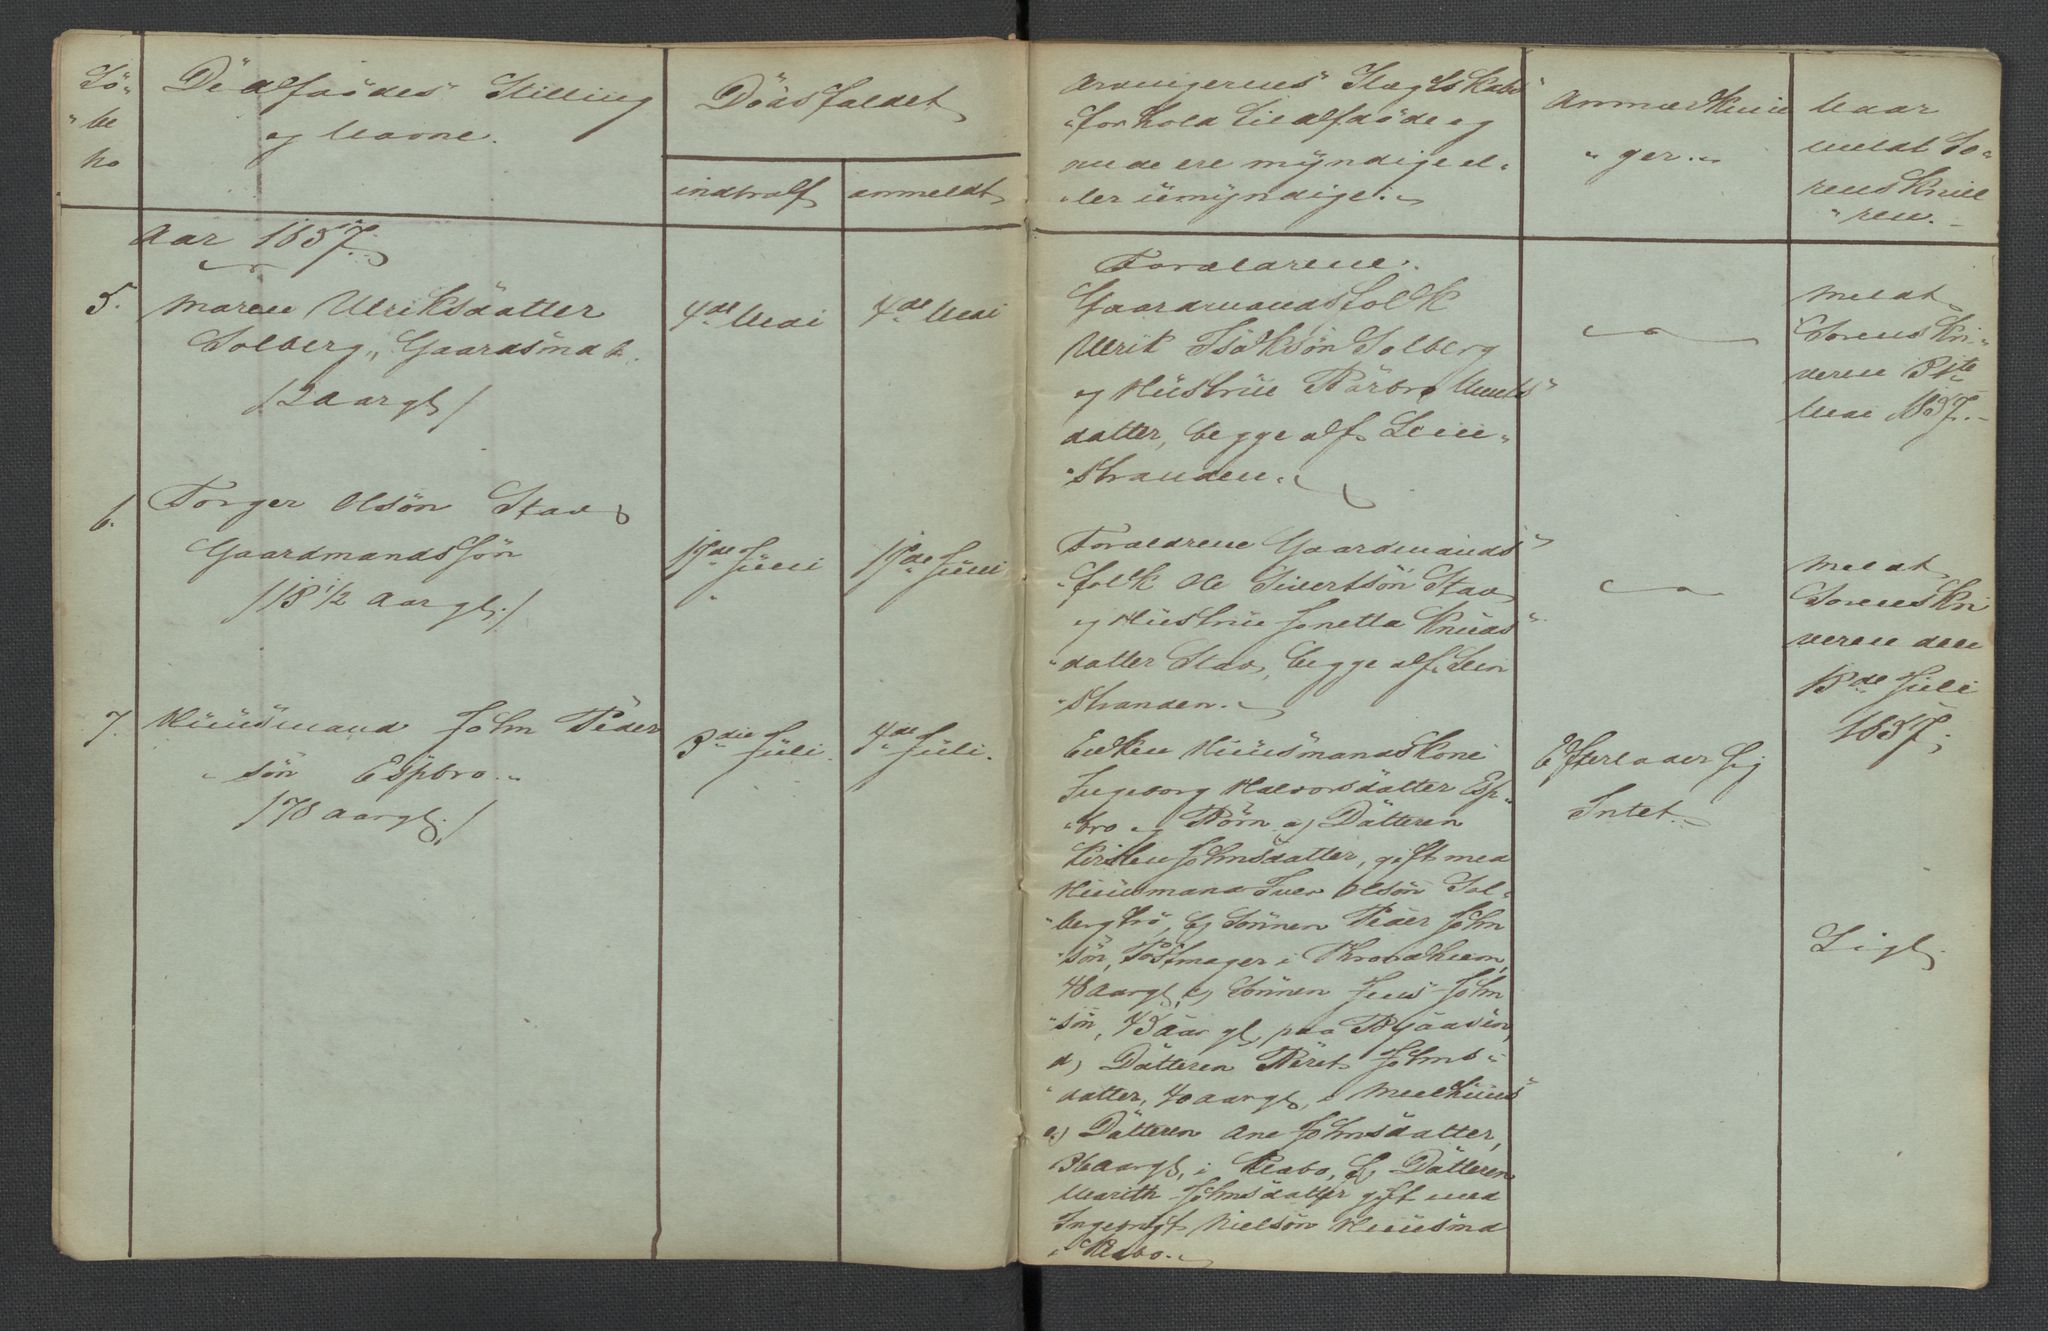 Lö-
"be
No
De Afdödes Stilling
og Navne.
Dödsfaldet
indtraf
anmeldt
Arvingernes Slægtskabs
forhold til Afdöde og
om de ere myndige el-
"ler umyndige.
Anmærknin
"ger."
Naar
meldt So-
renskrive
"ren.
Aar 1857.
5.
Maren Ulriksdatter
Solberg, Gaardsmd
/2 Aargl/
4de Mai
4de Mai
Forældrene.
Gaardmandsfolk
Ulrik Isaksön Solberg
og Hustrue Barbro
datter, begge af Lein-
"stranden.
Meldt
Sorenskri-
veren
Mai 1857.
6.
Torger Olsön Stav
Gaardmandssön
/18 1/2 Aargl./
Juni
Juni
Forældrene Gaardmands"
"folk Ole Sivertsön Stav
og Hustrue Jonetta Knuds"
"datter Stav, begge af Lein
"stranden.
Meldt
Sorenskri
veren den
13de Juli
1857.
7.
Huusmand John Peder
"sön Espbro."
/78 Aargl./
3die Juli.
4de Juli.
Enken Huusmandskone
Ingeborg Halvorsdatter Esp-
"bro og Börn a) Datteren
Kirsten Johnsdatter, gift med
Huusmand Iver Olsön Sol-
"bergtrö, b) Sönnen Peder John
"sön, Postmager i Throndhiem,
48 Aargl, c) Sönnen Jens John
"sön, 43 Aar gl, paa Byaasen,
d) Datteren Beret Johns-
"datter, 40 Aargl, i Meelhuus
e) Datteren Ane Johnsdatter,
36 Aargl, i Klæbo, f) Datteren
Marith Johnsdatter gift med
Ingebrigt Nielsön Huusmd
i Klæbo.
Efterlader sig
Intet.
Ligl